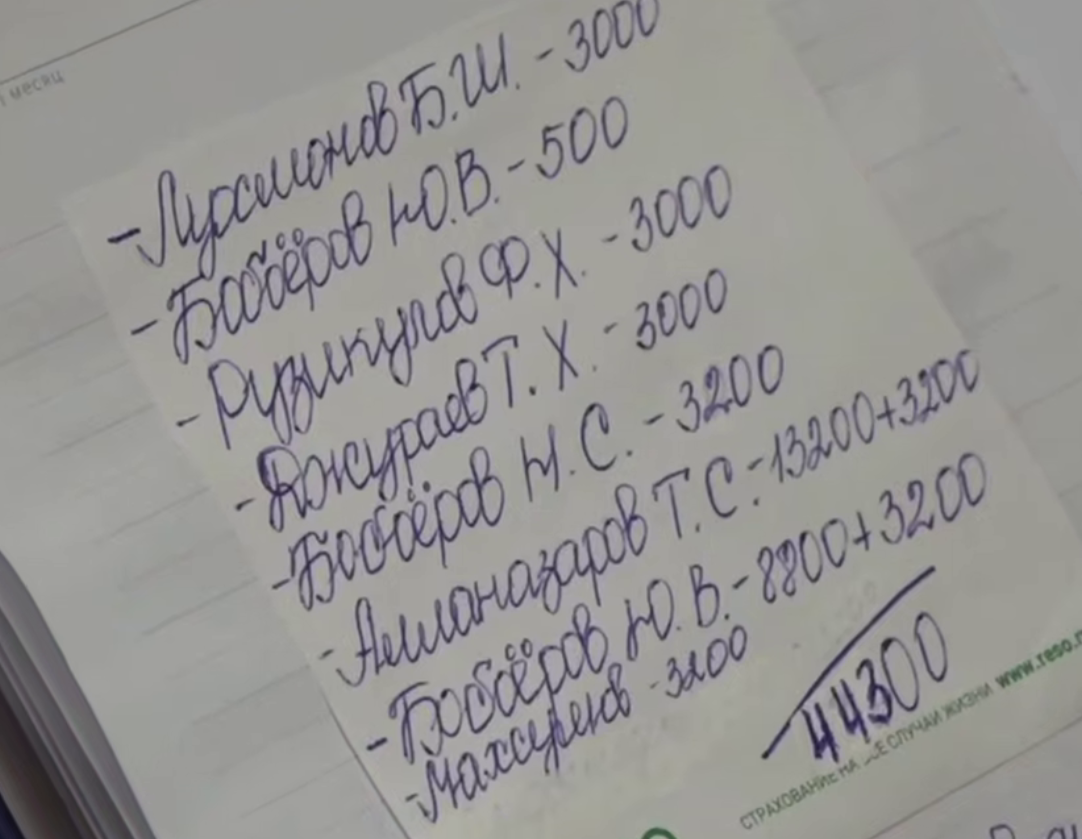 месяц
- Лурсмонов Б.Ш. - 3000
- Бобоёров Ю.В. - 500
- Рузикулов Ф.Х. - 3000
- Джураев Т.Х. - 3000
- Бобоёров Н.С. - 3200
- Алланазаров Т.С. - 13200+3200
- Бобоёров Ю.В. - 8800+3200
- - 3200
44300
СТРАХОВАНИЕ НА ВСЕ СЛУЧАИ ЖИЗНИ www.reso.